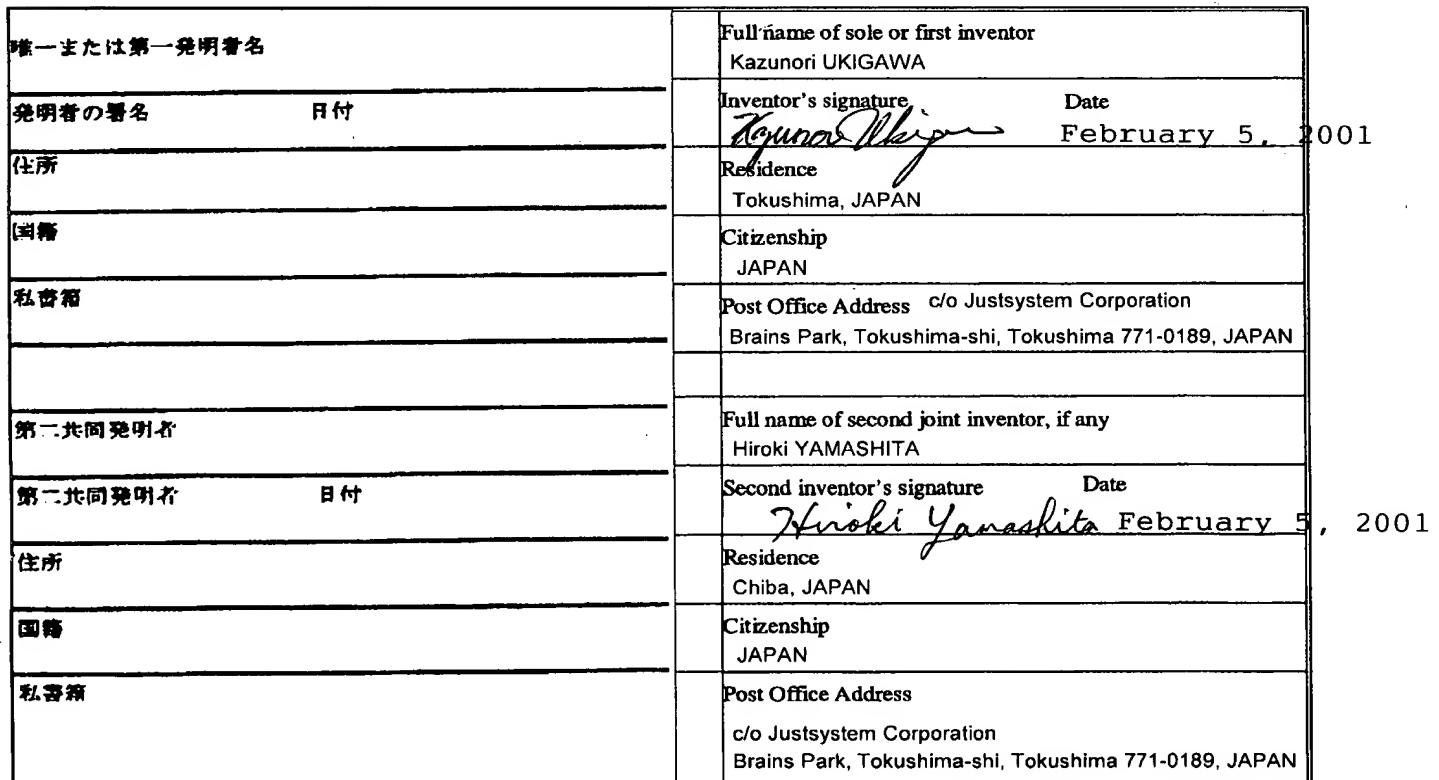 唯一または第一発明者名
Full name of sole or first inventor
Kazunori UKIGAWA
発明者の署名 日付
Inventor's signature Date
Kazunori Ukigawa February 5, 2001
住所
Residence
Tokushima, JAPAN
国籍
Citizenship
JAPAN
私書箱
Post Office Address c/o Justsystem Corporation
Brains Park, Tokushima-shi, Tokushima 771-0189, JAPAN
第二共同発明者
Full name of second joint inventor, if any
Hiroki YAMASHITA
第二共同発明者 日付
Second inventor's signature Date
Hiroki Yamashita February 5, 2001
住所
Residence
Chiba, JAPAN
国籍
Citizenship
JAPAN
私書箱
Post Office Address
c/o Justsystem Corporation
Brains Park, Tokushima-shi, Tokushima 771-0189, JAPAN